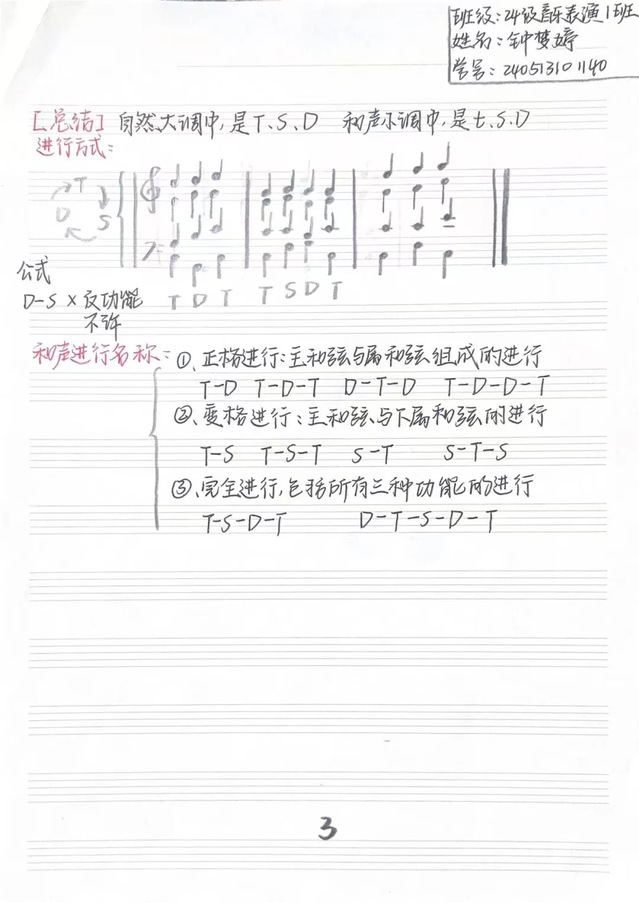 班级:24级音乐表演1班
姓名:钟梦婷
学号:240513101140
[总结] 自然大调中,是T、S、D 和声小调中,是t、s、D
进行方式:
T
D S
公式
D-S × 反功能
不许
T D T T S D T
和声进行名称:①、正格进行:主和弦与属和弦组成的进行
T-D T-D-T D-T-D T-D-D-T
②、变格进行:主和弦与下属和弦的进行
T-S T-S-T S-T S-T-S
③、完全进行,包括所有三种功能的进行
T-S-D-T D-T-S-D-T
3